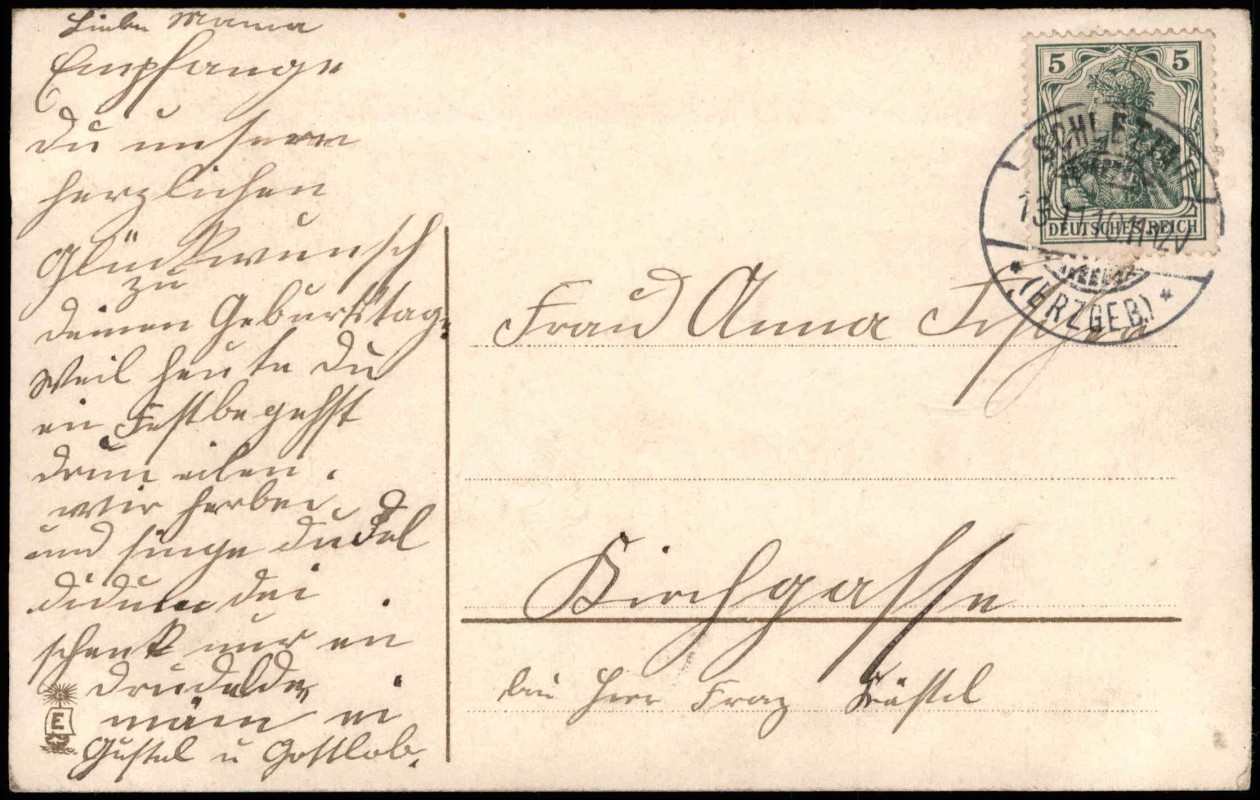 Liebe Mama
Empfange
du unsern
herzlichen
Glückwunsch
zu
deinen Geburtstage
Weil heute Du
ein Fest begehst
drum eilen
wir herbei
und singe dudel
didum dei
schenk uns ein
ein
Gustel u Gottlob.
E
5 5
DEUTSCHES REICH
SCHLETTAU
(ERZGEB.)
Frau Anna
Kirchgasse
bei Herr Franz